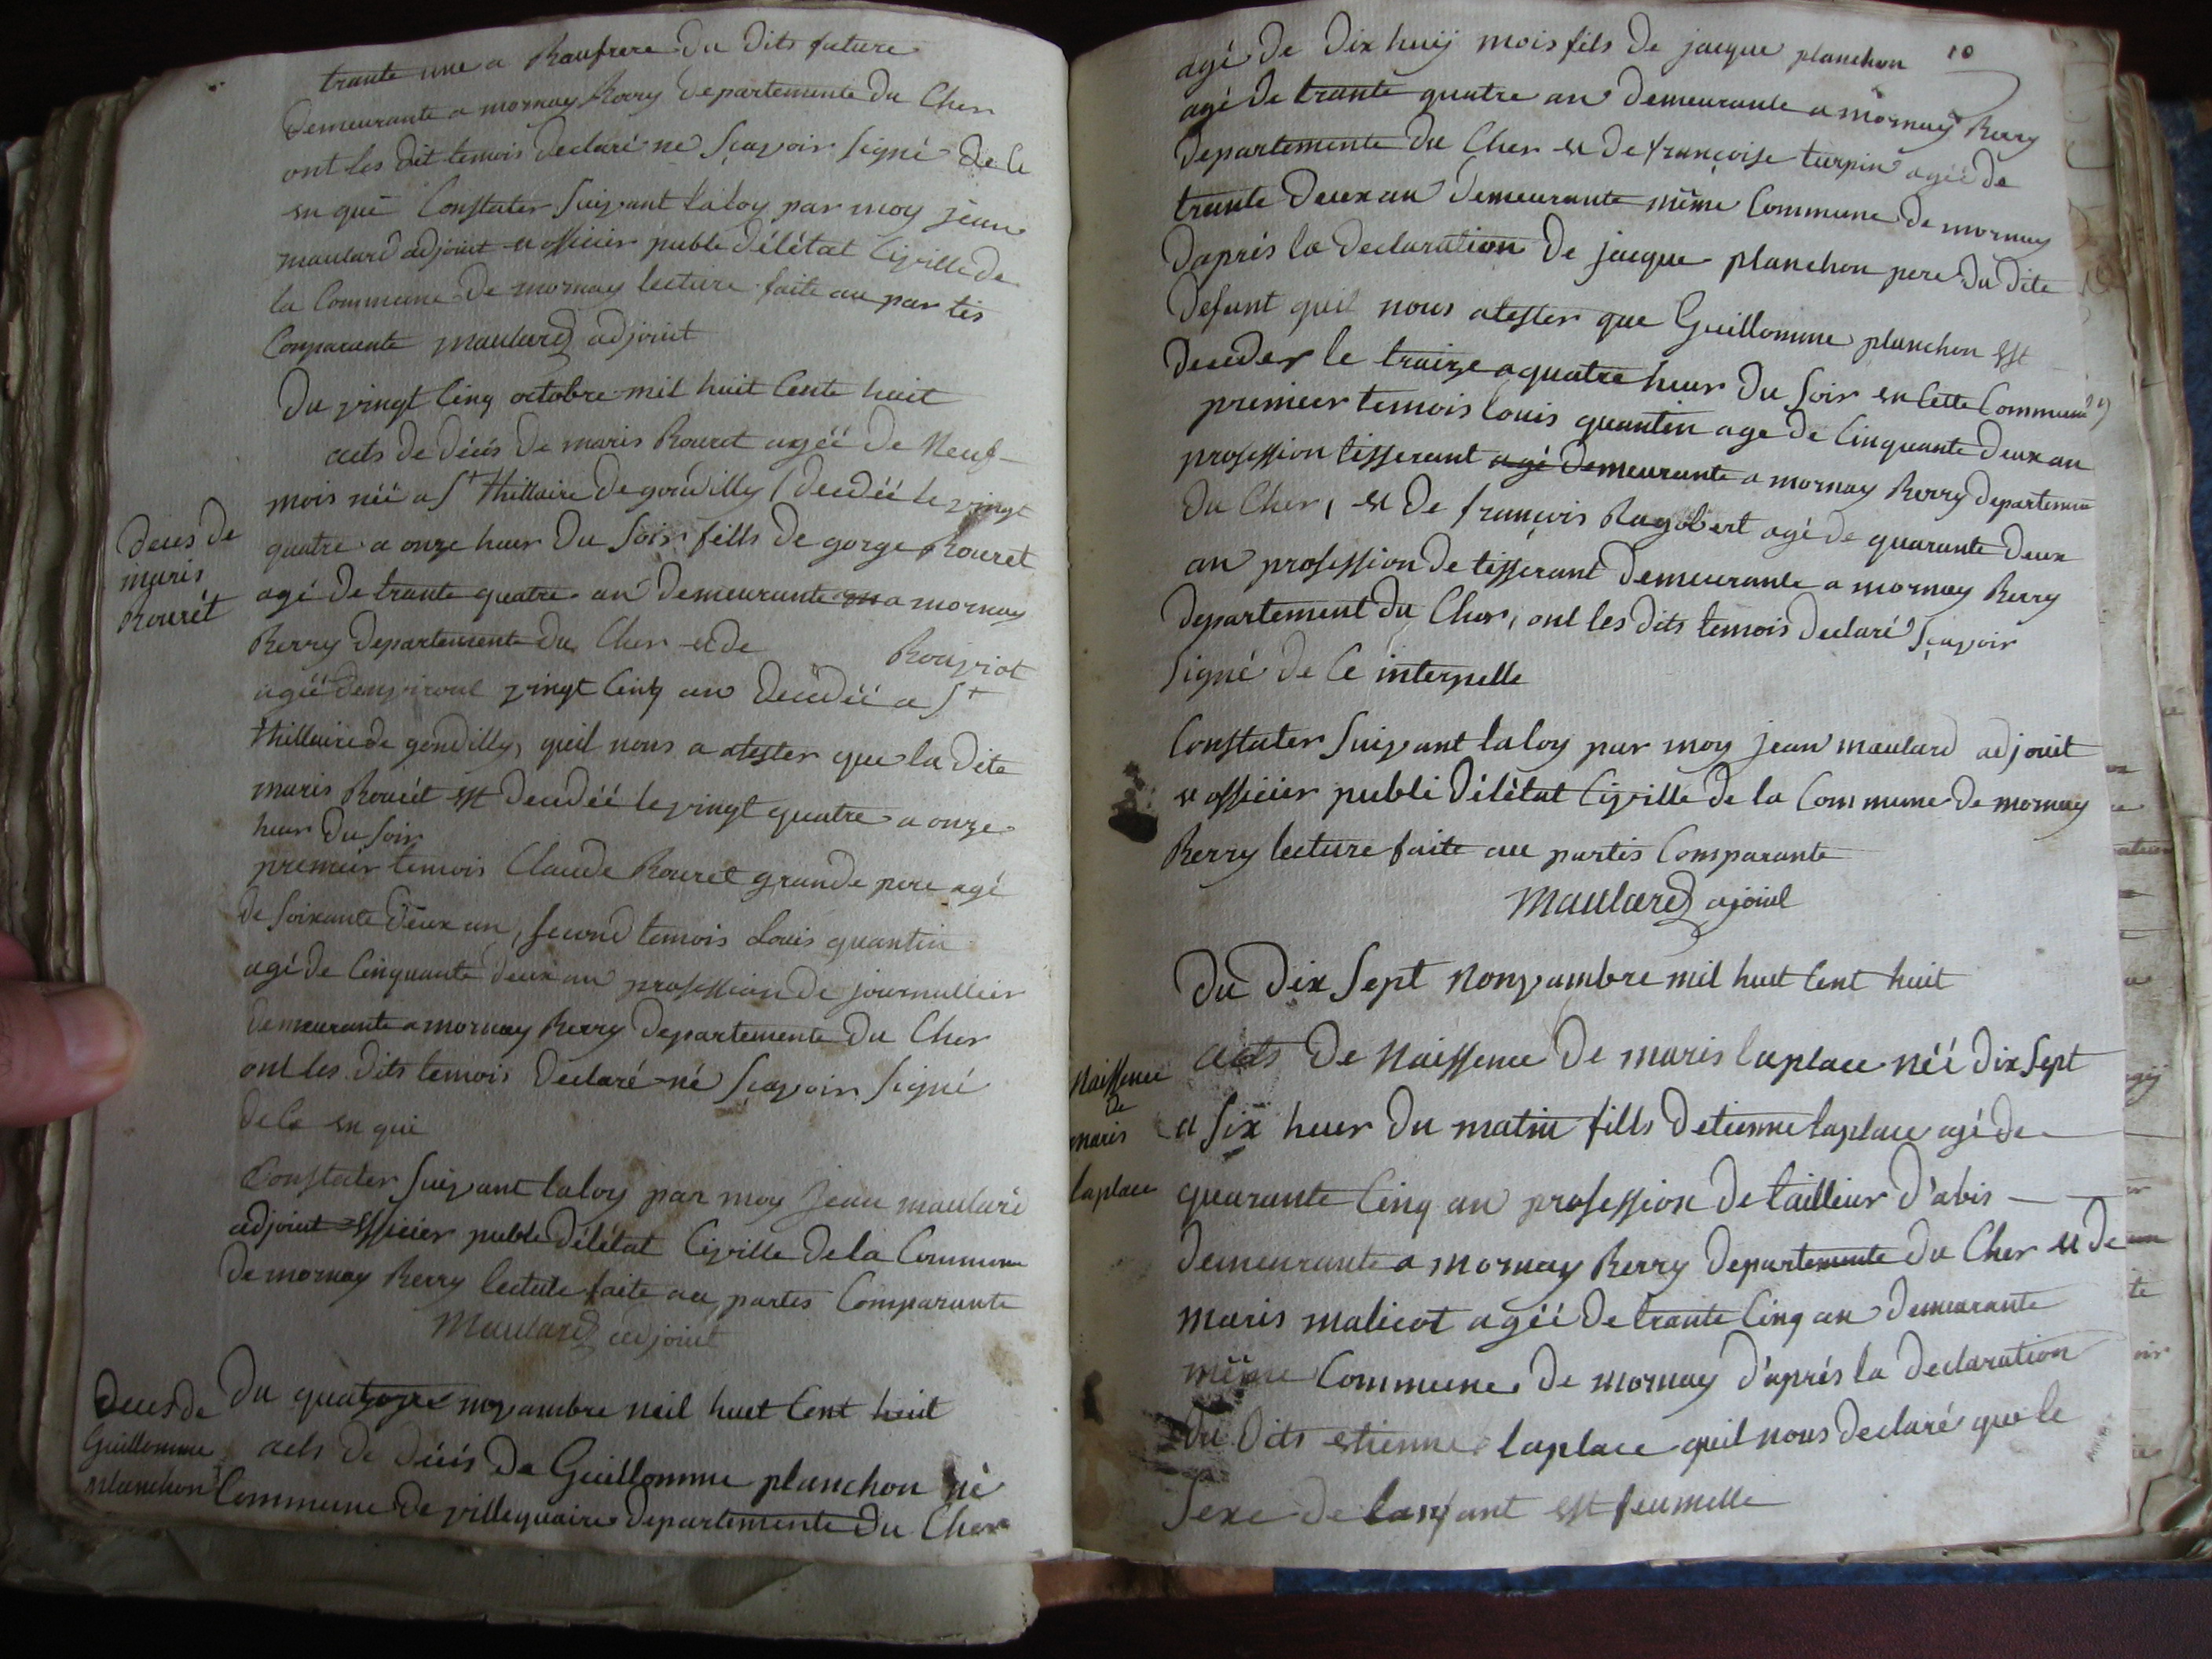 trante une a Baufrere du dits future
demeurante a mornay Berry departemente du Cher
ont les dit temois declaré ne sçavoir signé de le
en que Constater suivant la loy par moy jean
maulard adjoint et officier publi délétat Civille de
la Commune de mornay lecture faite au partis
Comparante maulard adjoint
Du vingt Cinq octobre mil huit Cente huit
acts de déces de maris Rouret agéé de Neuf
mois néé a St thillaire de gondilly (decedéé le vingt
quatre a onze heur du soir fills de gorge Rouret
agé de trante quatre an demeurante a mornay
Berry departemente du Cher et de Rouzriot
agéé denviront vingt Cinq an decedéé a St
thillaire de gondilly, queil nous a atester que la dite
maris Rourét est decedéé le vingt quatre a onze
heur du soir
premier temois Claude Rouret grande pere agé
de soixante deux an, second temois Louis quantin
agé de Cinquante deux an profession de journallier
demeurante a mornay Berry departemente du Cher
ont les dits temois declaré né sçavoir signé
de le en que
Constater suivant la loy par moy jean maulard
adjoint officier publi délétat Civille de la Commune
de mornay Berry lecture faite au partis Comparante
Maulard adjoint
deces de
maris
Rourét
Du quatorze novambre mil huit Cent huit
acts de déces de Guillomme planchon né
Commune de villequaire departemente du Cher
deces de
Guillomme
planchon
10
agé de dix huij mois fils de jacque planchon
agé de trante quatre an demeurante a mornay Berry
departemente du Cher et de françoise turpin agéé de
trante deux an demeurante même Commune de mornay
daprés la declaration de jacque planchon pere du dite
defunt queil nous atester que Guillomme planchon est
deceder le traize a quatre heur du soir en Cette Commune
premier temois louis quantin age de Cinquante deux an
profession tisserant agé demeurante a mornay Berry departemente
du Cher, et de françois Ragobert agé de quarante deux
an profession de tisserant demeurante a mornay Berry
departement du Cher, ont les dits temois declaré sçavoir
signé de Ce interpelle
Constater suivant la loy par moy jean maulard adjoint
et officier publi délétat Civille de la Commune de mornay
Berry lecture faite au partis Comparante
Maulard ajoint
Du dix sept Novambre mil huit Cent huit
acts de Naissence de maris laplace néé dix sept
a six heur du matin fills detienne laplace agé de
quarante Cinq an profession de tailleur d'abis
demeurante a mornay Berry departemente du Cher et de
maris malicot agéé de trante Cinq an demeurante
même Commune de mornay d'aprés la declaration
du dits etienne laplace queil nous declaré que le
sexe de lanfant est feumelle
Naissence
de
maris
laplace